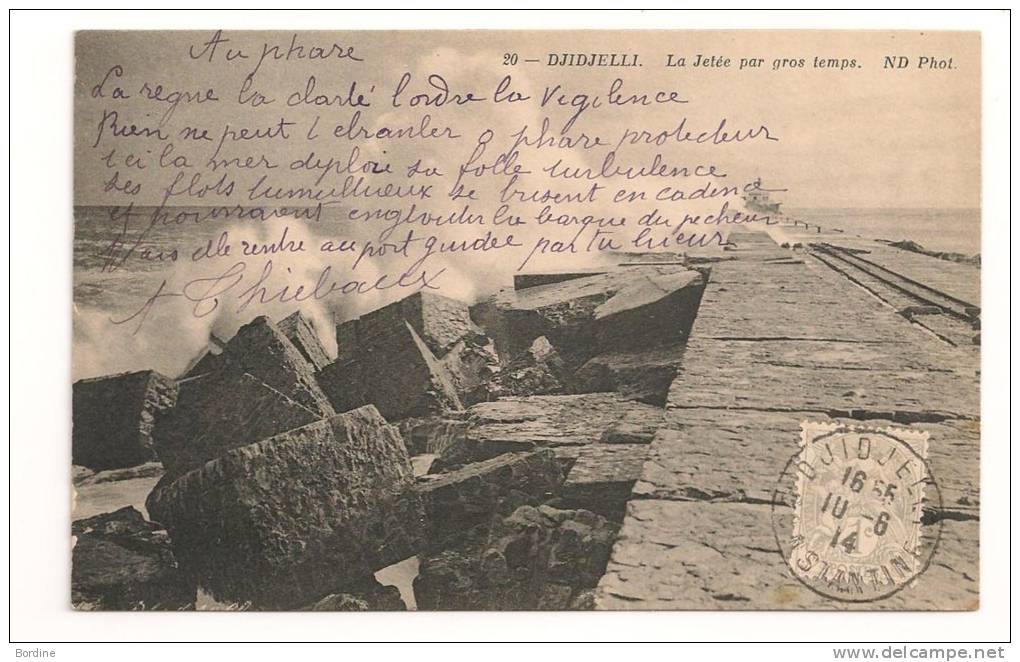 Au phare
20 — DJIDJELLI. La Jetée par gros temps. ND Phot.
La règne la clarté l'ordre la vigilence
Rien ne peut t ebranler o phare protecteur
Ici la mer deploie sa folle turbulence
Ses flots tumultueux se brisent en cadence
et pourraient engloutir la barque du pecheur
Mais elle rentre au port guidée par ta lueur
A Thiebaux
DJIDJELLI
16 55
10 - 6
14
CONSTANTINE
Bordine
www.delcampe.net